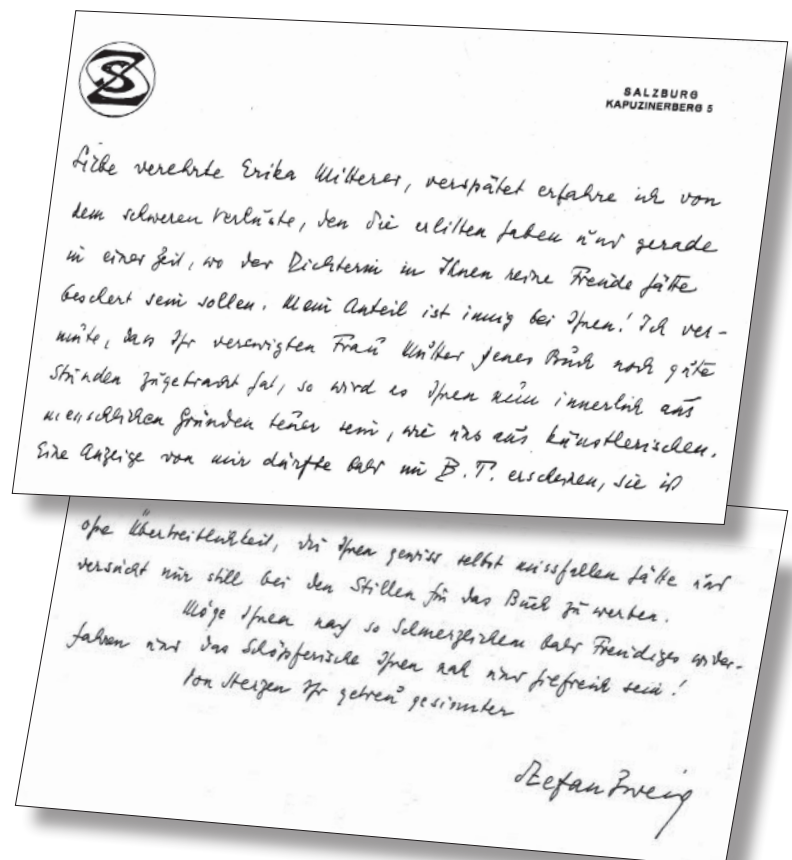 SZ
SALZBURG
KAPUZINERBERG 5
Liebe verehrte Erika Mitterer, verspätet erfahre ich von
dem schweren Verluste, den Sie erlitten haben und gerade
in einer Zeit, wo der Dichterin in Ihnen reine Freude hätte
beschert sein sollen. Mein Anteil ist innig bei Ihnen! Ich ver-
mute, dass Ihr verewigten Frau Mutter jenes Buch noch gute
Stunden zugebracht hat, so wird es Ihnen nun innerlich aus
menschlichen Gründen teuer sein, wie uns aus künstlerischen.
Eine Anzeige von mir dürfte bald im B.T. erscheinen, sie ist
ohne Übertreiblichkeit, die Ihnen gewiss selbst missfallen hätte und
versucht nur still bei den Stillen für das Buch zu werben.
Möge Ihnen nach so Schmerzlichem bald Freudiges wider-
fahren und das Schöpferische Ihnen nah und hilfreich sein!
Von Herzen Ihr getreu gesinnter
Stefan Zweig